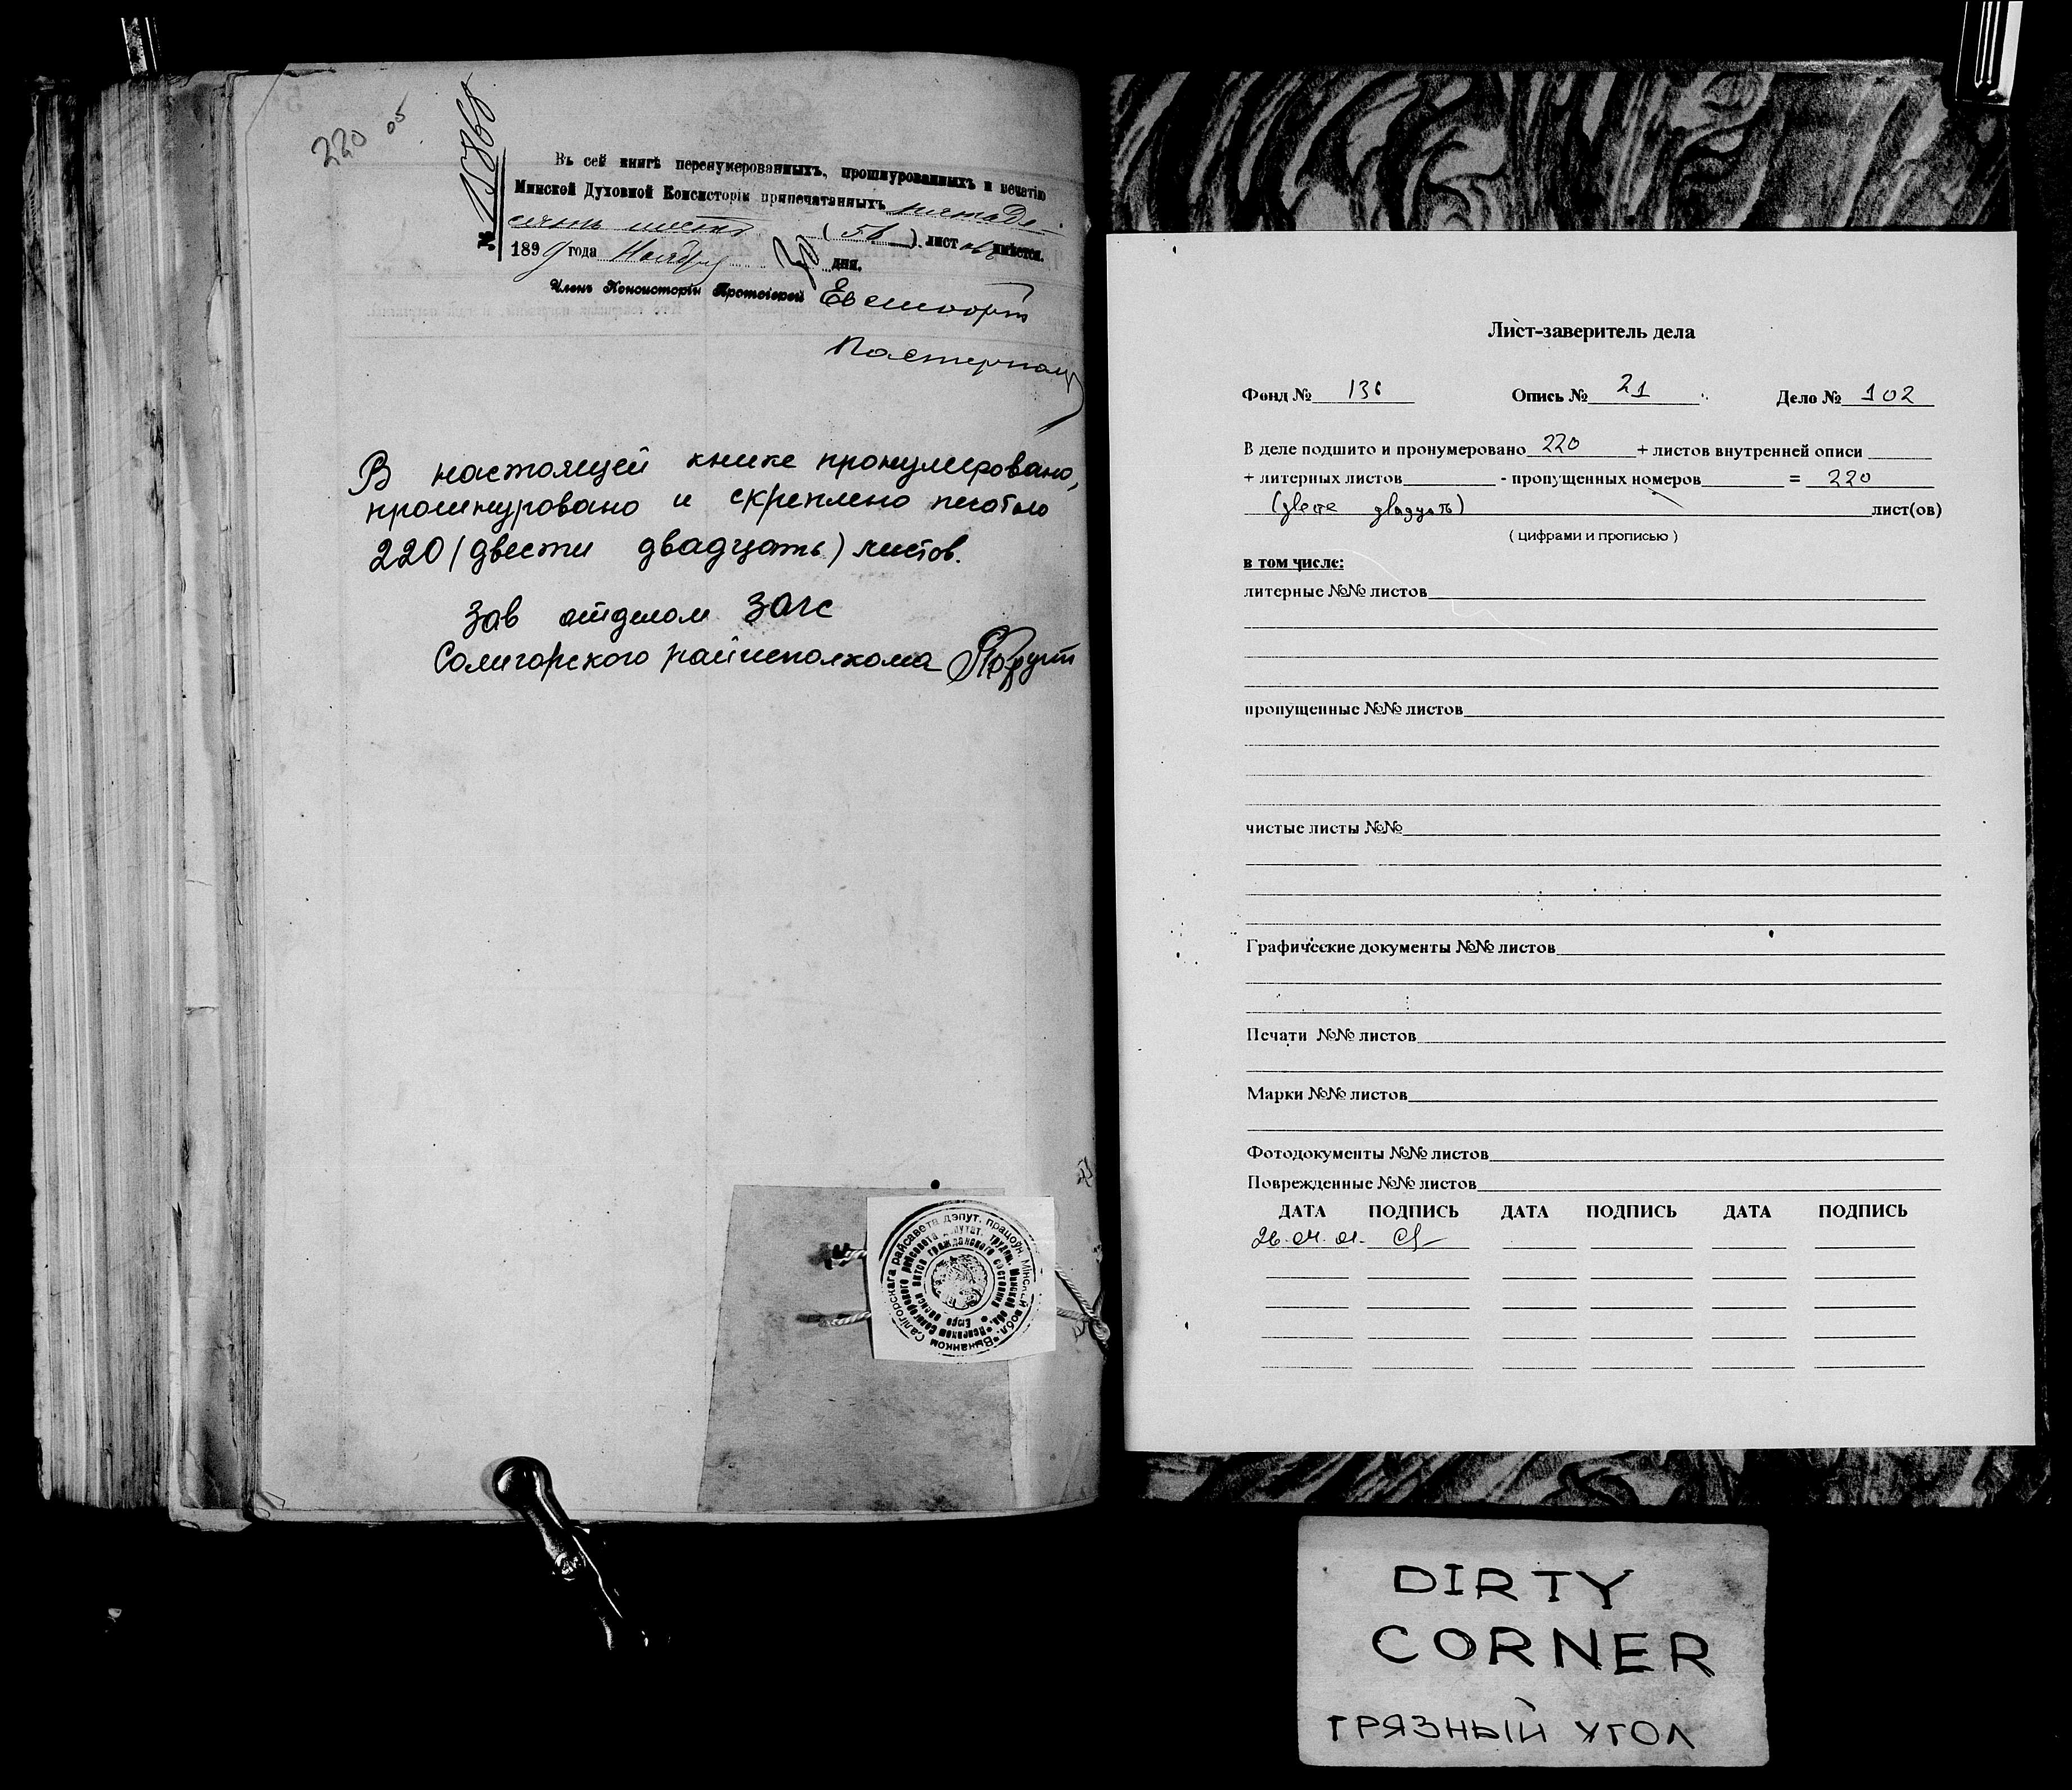 220
№ 15768
Въ сей книгѣ перенумерованныхъ, прошнурованныхъ и печатію
Минской Духовной Консисторіи припечатанныхъ пятьде-
сятъ шесть (56) листовъ имѣется.
1899 года Ноября 30 дня.
Членъ Консисторіи Протоіерей
В настоящей книге пронумеровано,
прошнуровано и скреплено печатью
220 (двести двадцать) листов.
Зав отделом ЗАГС
Солигорского райисполкома
Лист-заверитель дела
Фонд № 136 Опись № 21 Дело № 102
В деле подшито и пронумеровано 220 + листов внутренней описи
+ литерных листов - пропущенных номеров = 220
(двести двадцать) лист(ов)
( цифрами и прописью )
в том числе:
литерные №№ листов
пропущенные №№ листов
чистые листы №№
Графические документы №№ листов
Печати №№ листов
Марки №№ листов
Фотодокументы №№ листов
Поврежденные №№ листов
ДАТА ПОДПИСЬ ДАТА ПОДПИСЬ ДАТА ПОДПИСЬ
26.04.01.
DIRTY
CORNER
ГРЯЗНЫЙ УГОЛ